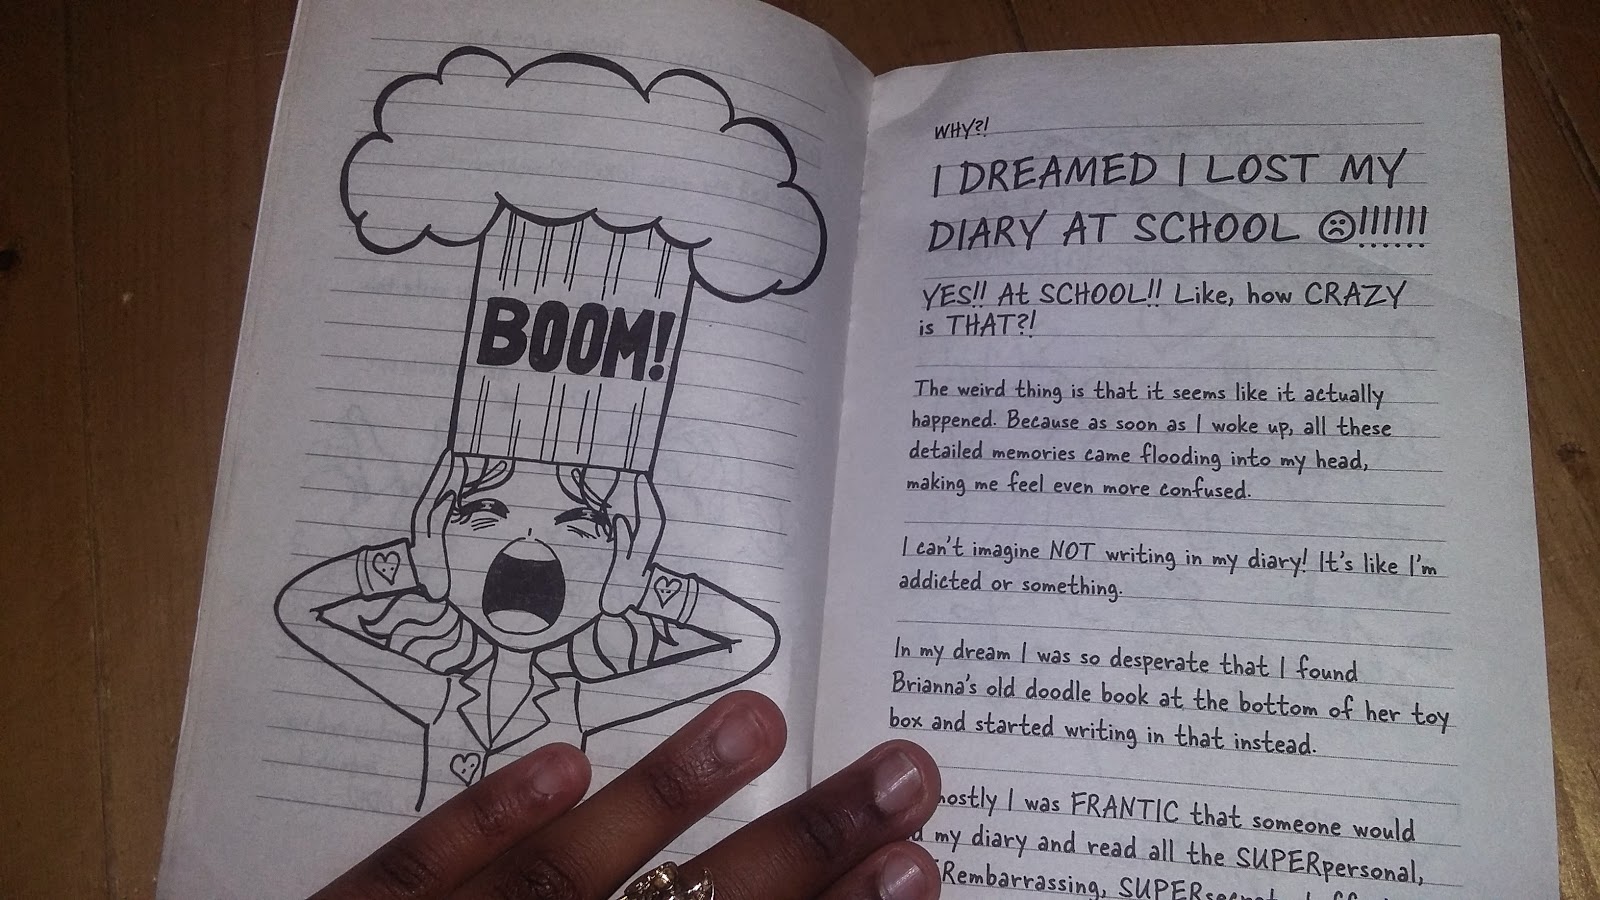 BOOM!
WHY?!
I DREAMED I LOST MY
DIARY AT SCHOOL ☹!!!!!!
YES!! At SCHOOL!! Like, how CRAZY
is THAT?!
The weird thing is that it seems like it actually
happened. Because as soon as I woke up, all these
detailed memories came flooding into my head,
making me feel even more confused.
I can't imagine NOT writing in my diary! It's like I'm
addicted or something.
In my dream I was so desperate that I found
Brianna's old doodle book at the bottom of her toy
box and started writing in that instead.
I was FRANTIC that someone would
my diary and read all the SUPERpersonal,